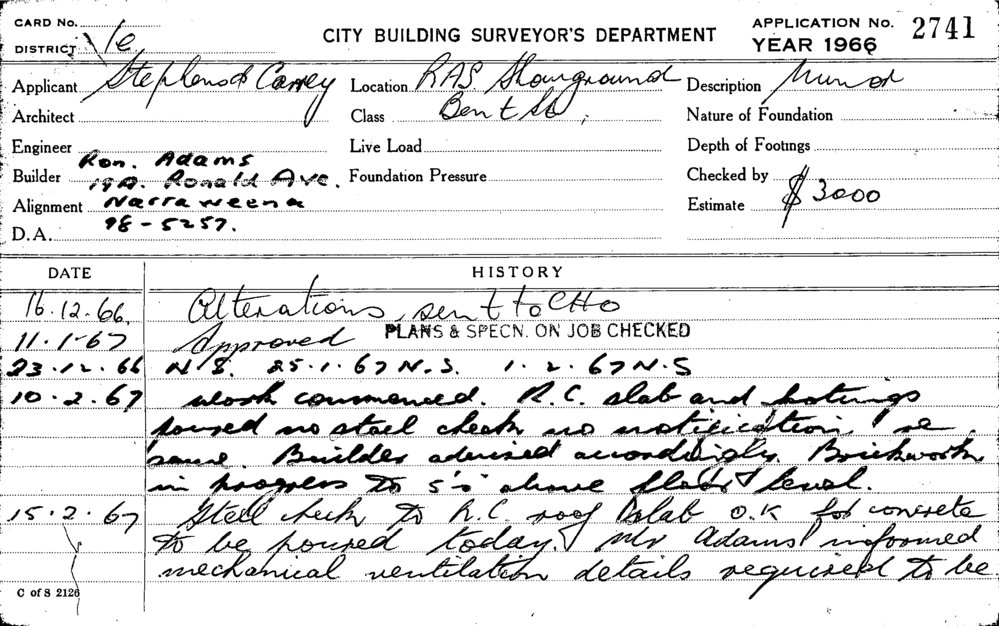 CARD No.
DISTRICT 1e
CITY BUILDING SURVEYOR'S DEPARTMENT
APPLICATION No. 2741
YEAR 1966
Applicant Stephens & Carrey
Location RAS. Showground
Description
Architect
Class Bent St
Nature of Foundation
Engineer
Live Load
Depth of Footings
Builder Ron. Adams
19A. Ronald Ave.
Foundation Pressure
Checked by
Alignment Narraweena
Estimate $3000
D.A. 98-5257.
DATE HISTORY
16.12.66. Alterations, sent to CHO
11.1.67 Approved PLANS & SPECN. ON JOB CHECKED
23.12.66 N.S. 25.1.67 N.S. 1.2.67 N.S
10.2.67 work commenced. R.C. slab and footings
poured no steel check no notification re
same. Builder advised accordingly. Brickwork
in progress to 5'0" above floor level.
15.2.67 Steel check to R.C. roof slab O.K for concrete
to be poured today. Mr Adams informed
mechanical ventilation details required to be
C of S 2126